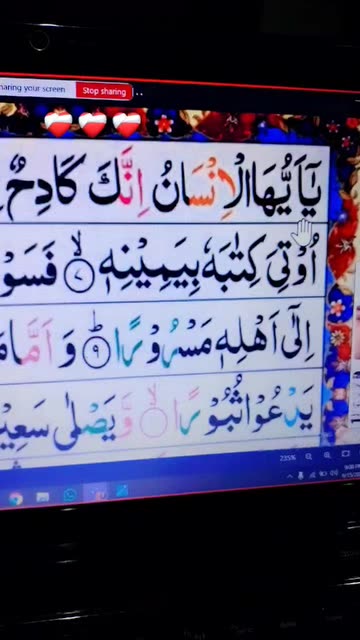 haring your screen Stop sharing
يٰٓاَيُّهَا الْاِنْسَانُ اِنَّكَ كَادِحٌ
اُوْتِيَ كِتٰبَهٗ بِيَمِيْنِهٖ ۙ ۷ فَسَوْ
اِلٰٓى اَهْلِهٖ مَسْرُوْرًا ؕ ۹ وَ اَمَّا
يَدْعُوْا ثُبُوْرًا ۙ وَّ يَصْلٰى سَعِيْ
235%